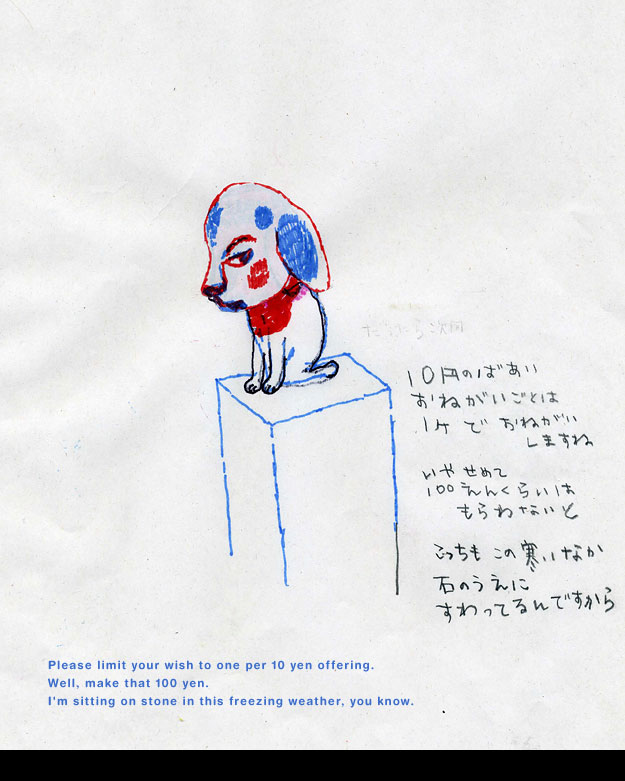 10円のばあい
おねがいごとは
1ケで おねがい
しますね
いや せめて
100えんくらいは
もらわないと
こっちも この寒いなか
石のうえに
すわってるんですから
Please limit your wish to one per 10 yen offering.
Well, make that 100 yen.
I'm sitting on stone in this freezing weather, you know.